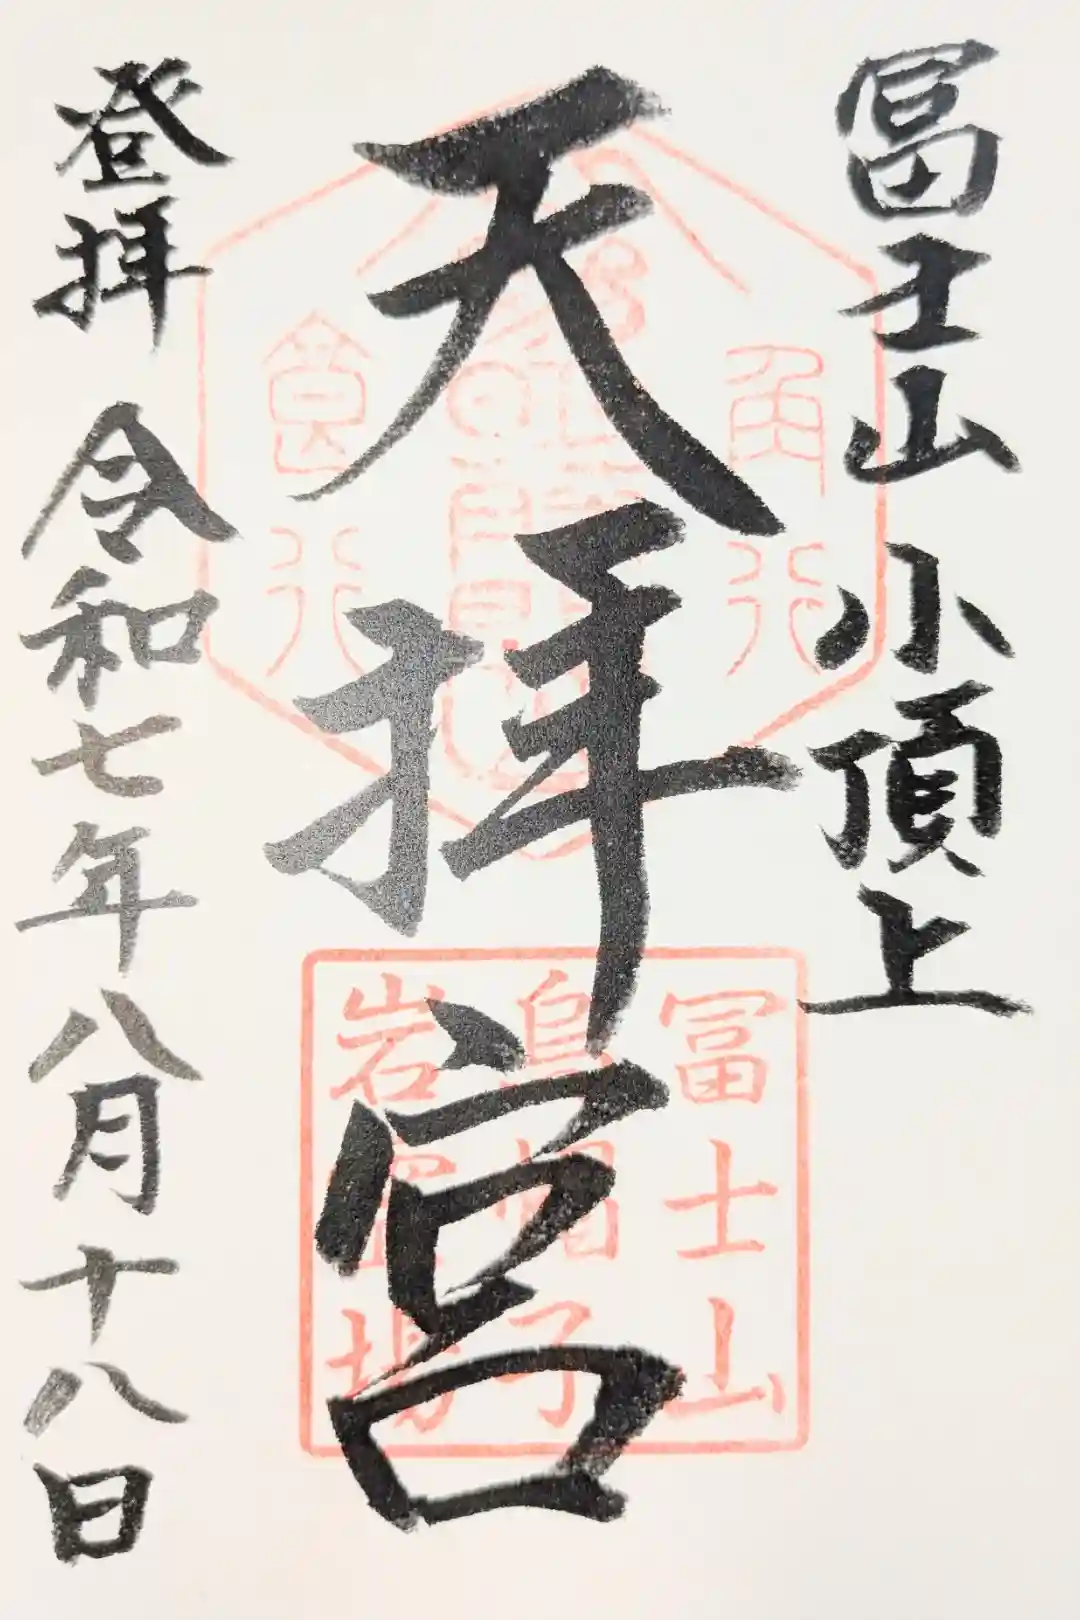 冨士山小頂上
天拝宮
登拝 令和七年八月十八日
角行
食行
冨士山
烏帽子
岩霊場